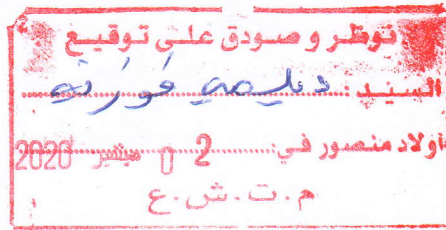 نوظر و صودق على توقيع
السيد:
اولاد منصور في: 02 سبتمبر 2020
م.ت.ش.ع